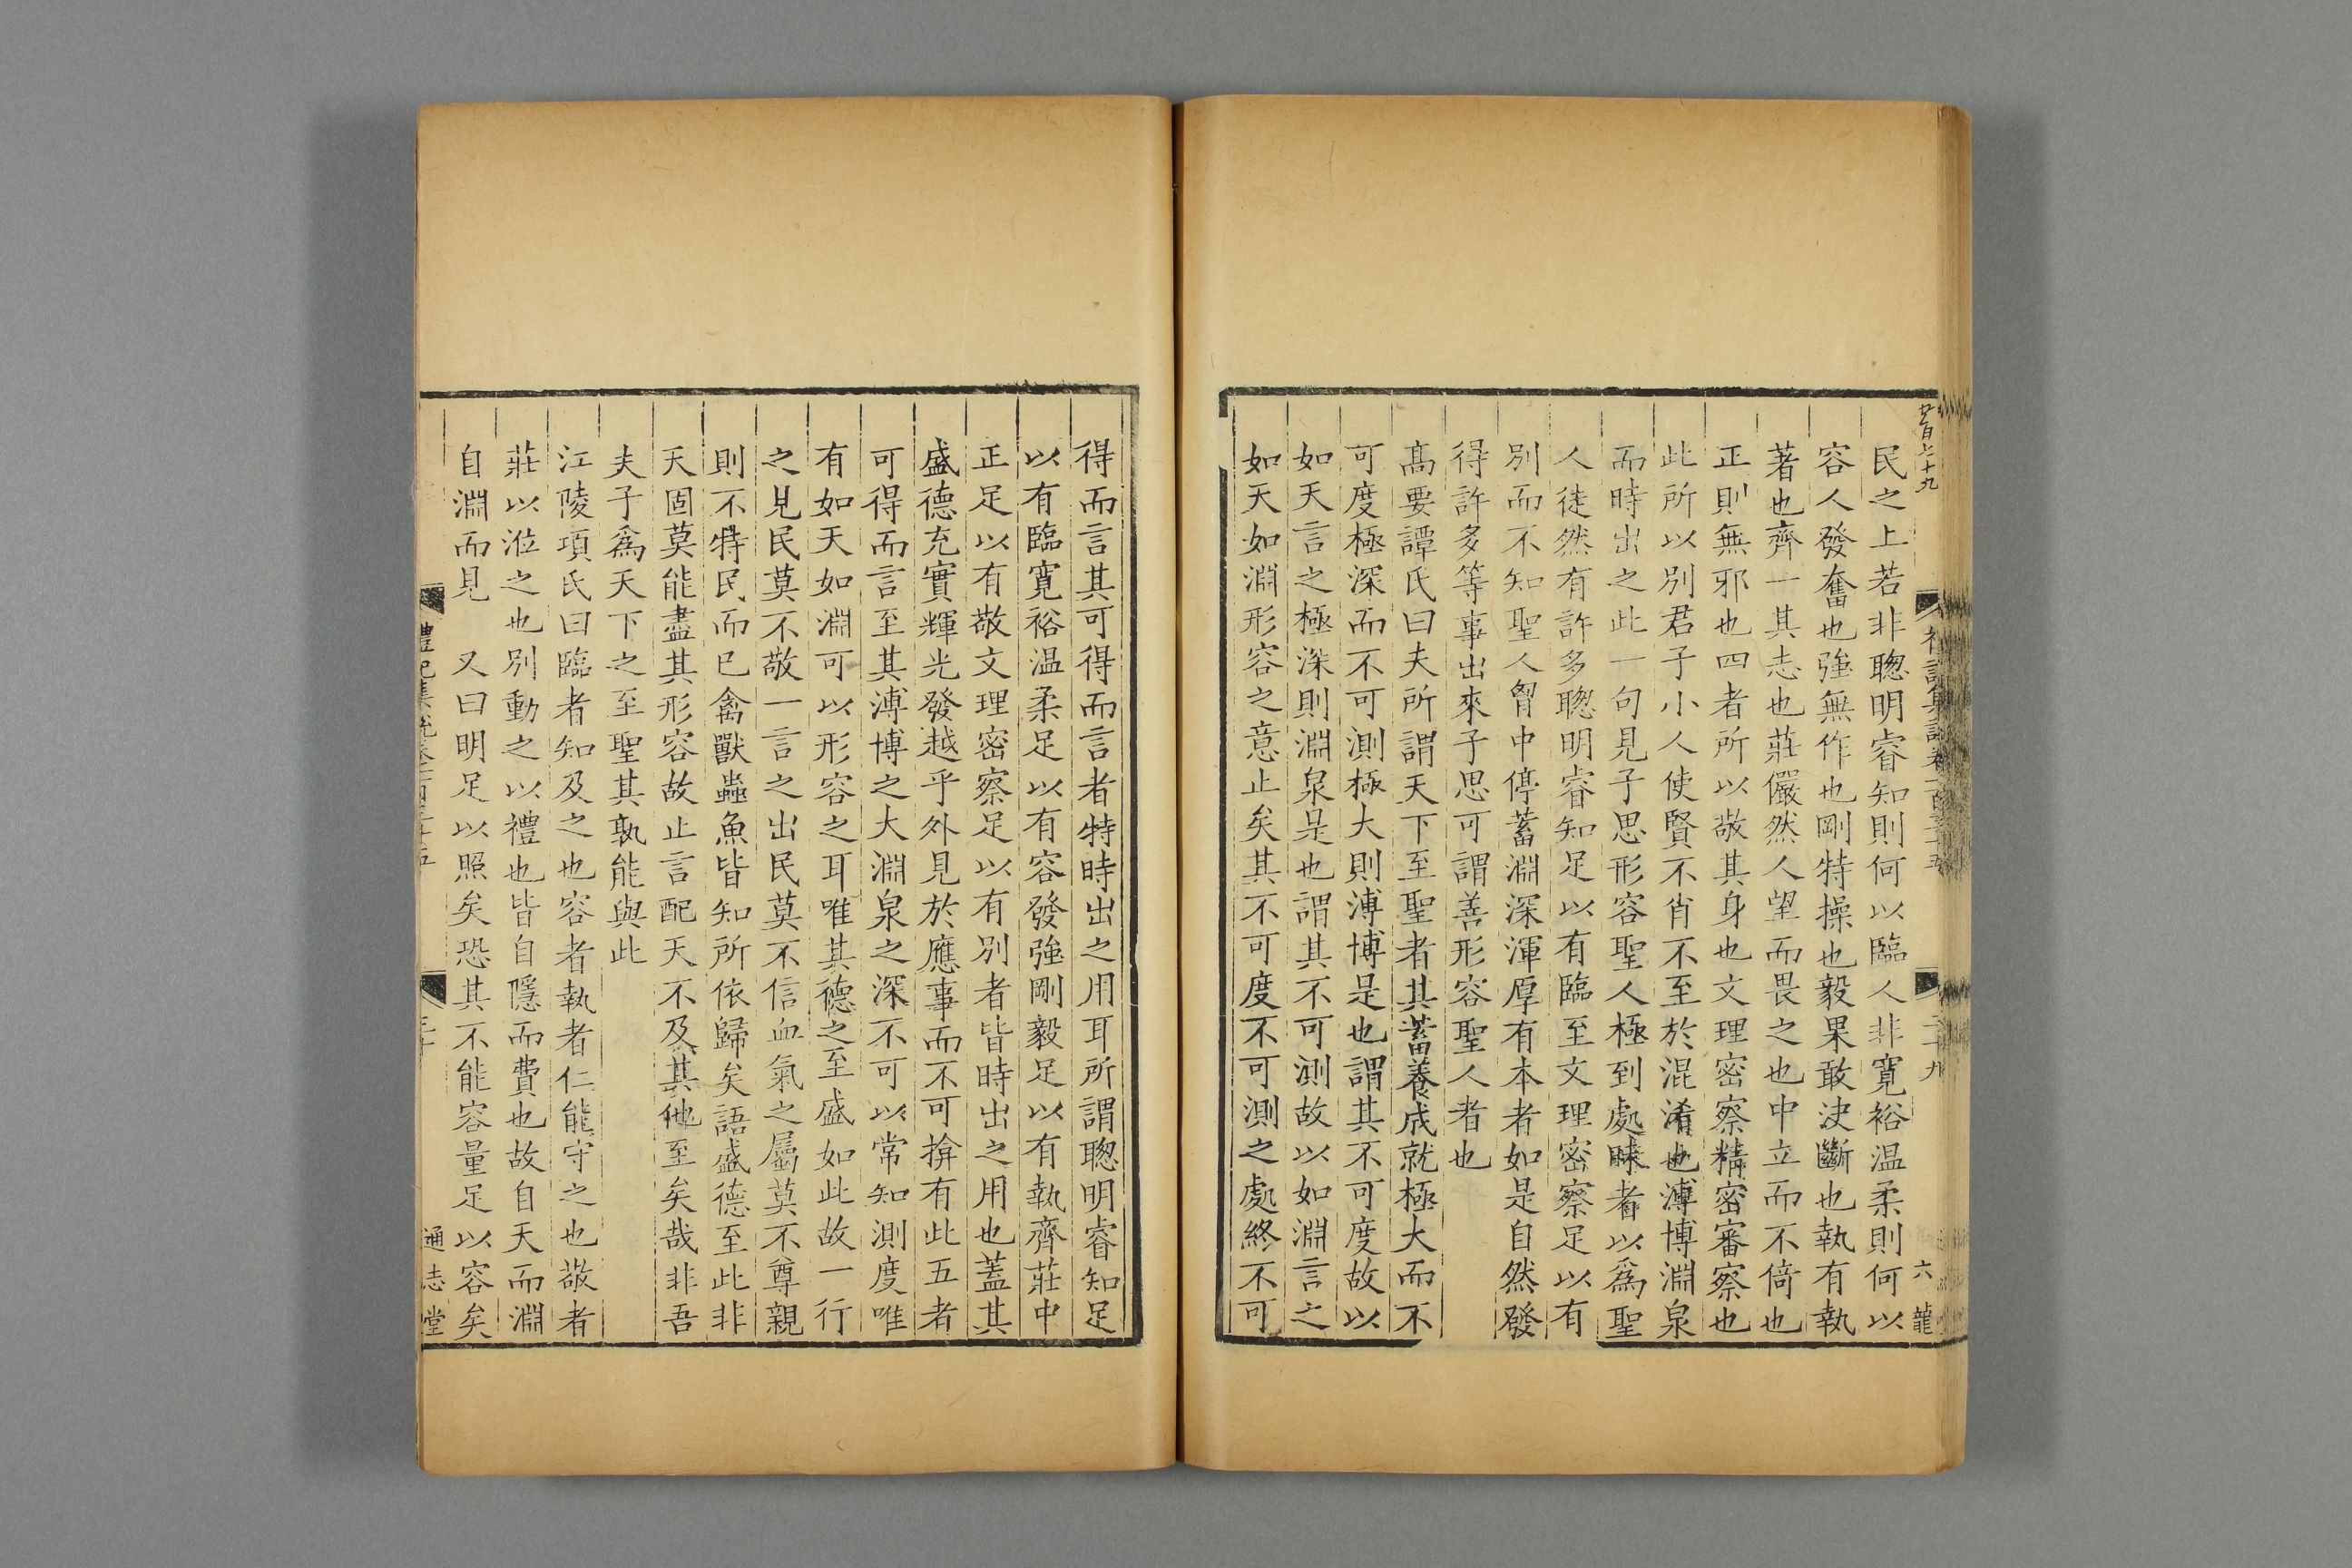 民之上若非聦明睿知則何以臨人非寛裕温柔則何以
容人發奮也強無作也剛特操也毅果敢決斷也執有執
著也齊一其志也莊儼然人望而畏之也中立而不倚也
正則無邪也四者所以敬其身也文理密察精密審察也
此所以別君子小人使賢不肖不至於混淆也溥博淵泉
而時出之此一句見子思形容聖人極到處昧者以爲聖
人徒然有許多聦明睿知足以有臨至文理密察足以有
別而不知聖人胷中停蓄淵深渾厚有本者如是自然發
得許多等事出來子思可謂善形容聖人者也
髙要譚氏曰夫所謂天下至聖者其蓄養成就極大而不
可度極深而不可測極大則溥博是也謂其不可度故以
如天言之極深則淵泉是也謂其不可測故以如淵言之
如天如淵形容之意止矣其不可度不可測之處終不可
得而言其可得而言者特時出之用耳所謂聦明睿知足
以有臨寛裕温柔足以有容發強剛毅足以有執齊莊中
正足以有敬文理密察足以有別者皆時出之用也蓋其
盛德充實輝光發越乎外見於應事而不可揜有此五者
可得而言至其溥博之大淵泉之深不可以常知測度唯
有如天如淵可以形容之耳唯其德之至盛如此故一行
之見民莫不敬一言之出民莫不信血氣之屬莫不尊親
則不特民而已禽獸蟲魚皆知所依歸矣語盛德至此非
天固莫能盡其形容故止言配天不及其他至矣哉非吾
夫子爲天下之至聖其孰能與此
江陵項氏曰臨者知及之也容者執者仁能守之也敬者
莊以涖之也別動之以禮也皆自隱而費也故自天而淵
自淵而見　又曰明足以照矣恐其不能容量足以容矣
禮記集說卷一百三十五
三十
通志堂
二十九
六
龍